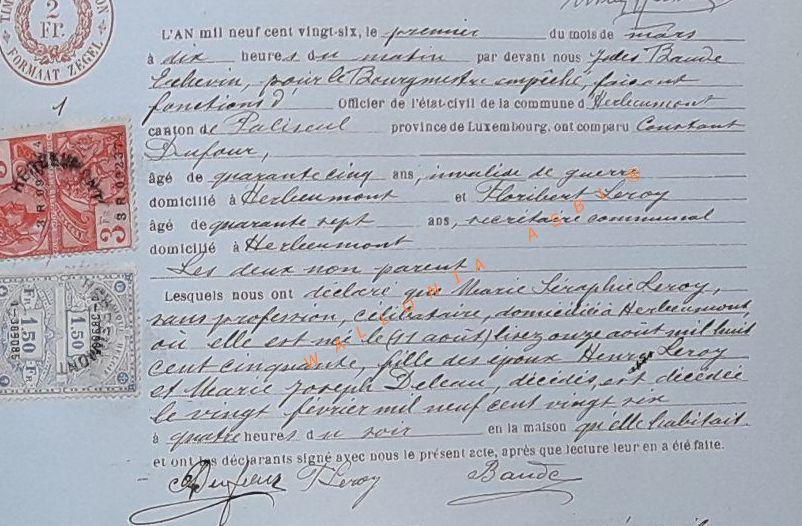 2
Fr.
FORMAAT ZEGEL
1
L'AN mil neuf cent vingt-six, le premier du mois de mars
à dix heures du matin par devant nous Jules Baude
Echevin, pour le Bourgmestre empêché, faisant
fonctions d' Officier de l'état-civil de la commune d'Herbeumont
canton de Paliseul province de Luxembourg, ont comparu Constant
Dufour,
âgé de quarante cinq ans, invalide de guerre
domicilié à Herbeumont et Floribert Leroy
âgé de quarante sept ans, secrétaire communal
domicilié à Herbeumont
Les deux non parent
Lesquels nous ont déclaré que Marie Séraphie Leroy,
sans profession, célibataire, domiciliée à Herbeumont,
où elle est née le (11 août) lisez onze août mil huit
cent cinquante, fille des époux Henry Leroy
et Marie Joseph Deleau, décédés, est décédée
le vingt février mil neuf cent vingt six
à quatre heures du soir en la maison qu'elle habitait.
et ont les déclarants signé avec nous le présent acte, après que lecture leur en a été faite.
Dufour FLeroy Baude
HERBEUMONT
3
Fr
1.50
Fr
1.50
HERBEUMONT
WALLONIA ASBL